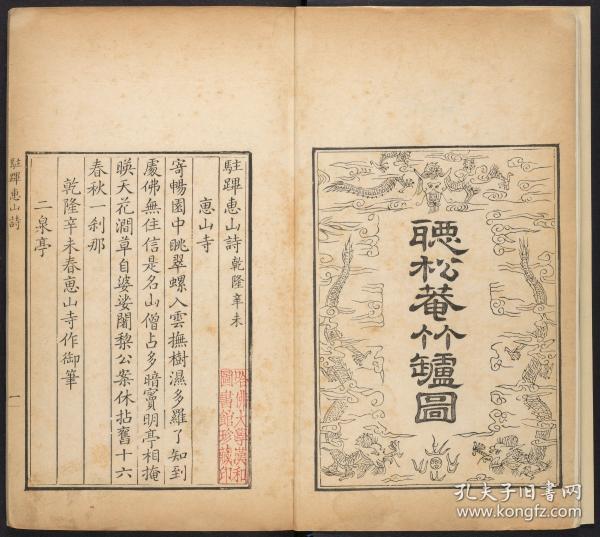 聽松菴竹罏圖
駐蹕惠山詩 乾隆辛未
惠山寺
寄暢園中眺翠螺入雲撫樹濕多羅了知到
處佛無住信是名山僧占多暗竇明亭相掩
暎天花澗草自婆娑闍黎公案休拈舊十六
春秋一刹那
乾隆辛未春惠山寺作御筆
二泉亭
駐蹕惠山詩
一
哈佛大學漢和
圖書館珍藏印
孔夫子旧書网
www.kongfz.com